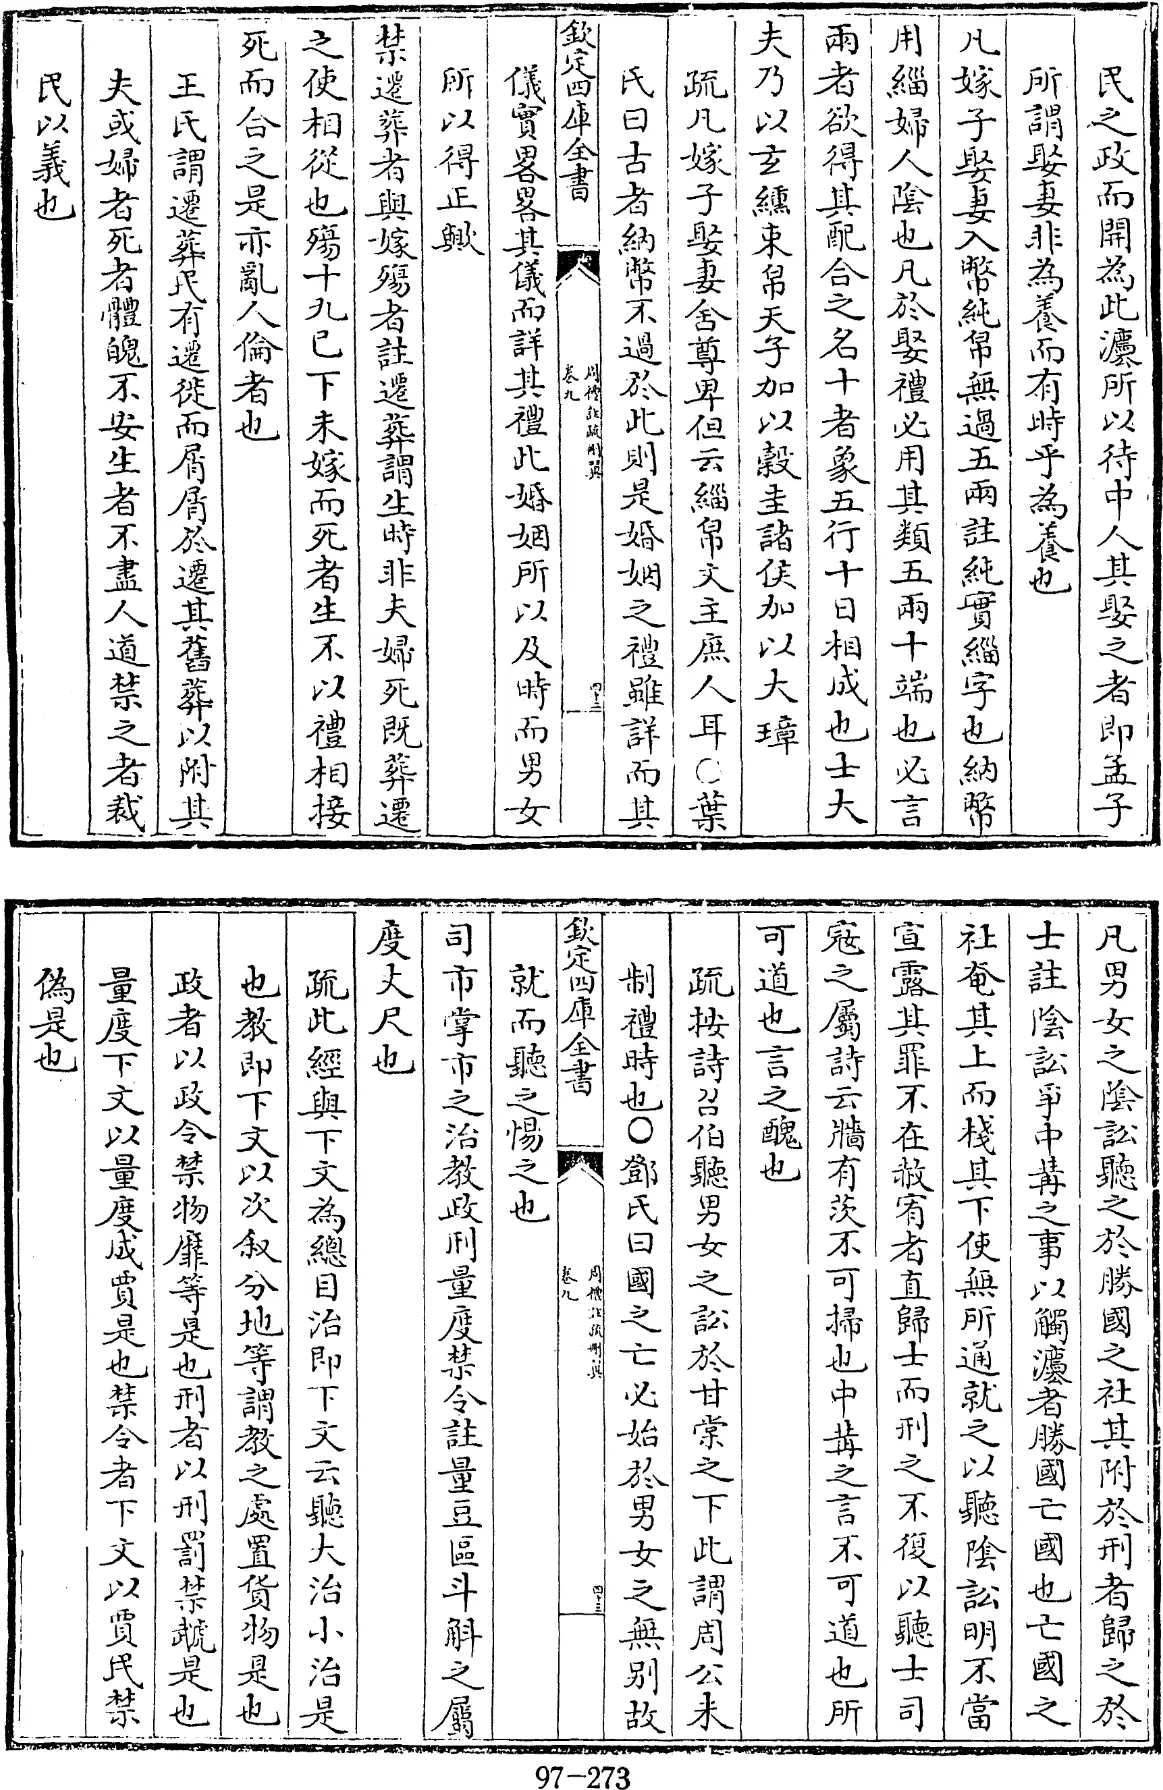 民之政而開為此灋所以待中人其娶之者即孟子
所謂娶妻非為養而有時乎為養也
凡嫁子娶妻入幣純帛無過五兩註純實緇字也納幣
用緇婦人陰也凡於娶禮必用其類五兩十端也必言
兩者欲得其配合之名十者象五行十日相成也士大
夫乃以玄纁束帛天子加以穀圭諸侯加以大璋
疏凡嫁子娶妻舍尊卑但云緇帛文主庶人耳○葉
氏曰古者納幣不過於此則是婚姻之禮雖詳而其
欽定四庫全書
周禮註疏刪翼
卷九
四十三
儀實畧畧其儀而詳其禮此婚姻所以及時而男女
所以得正歟
禁遷葬者與嫁殤者註遷葬謂生時非夫婦死既葬遷
之使相從也殤十九已下未嫁而死者生不以禮相接
死而合之是亦亂人倫者也
王氏謂遷葬民有遷徙而屑屑於遷其舊葬以附其
夫或婦者死者體魄不安生者不盡人道禁之者裁
民以義也
凡男女之陰訟聽之於勝國之社其附於刑者歸之於
士註陰訟爭中冓之事以觸灋者勝國亡國也亡國之
社奄其上而棧其下使無所通就之以聽陰訟明不當
宣露其罪不在赦宥者直歸士而刑之不復以聽士司
寇之屬詩云牆有茨不可掃也中冓之言不可道也所
可道也言之醜也
疏按詩召伯聽男女之訟於甘棠之下此謂周公未
制禮時也○鄧氏曰國之亡必始於男女之無別故
欽定四庫全書
周禮註疏刪翼
卷九
四十三
就而聽之惕之也
司市掌市之治教政刑量度禁令註量豆區斗斛之屬
度丈尺也
疏此經與下文為總目治即下文云聽大治小治是
也教即下文以次叙分地等謂教之處置貨物是也
政者以政令禁物靡等是也刑者以刑罰禁虣是也
量度下文以量度成賈是也禁令者下文以賈民禁
偽是也
97-273